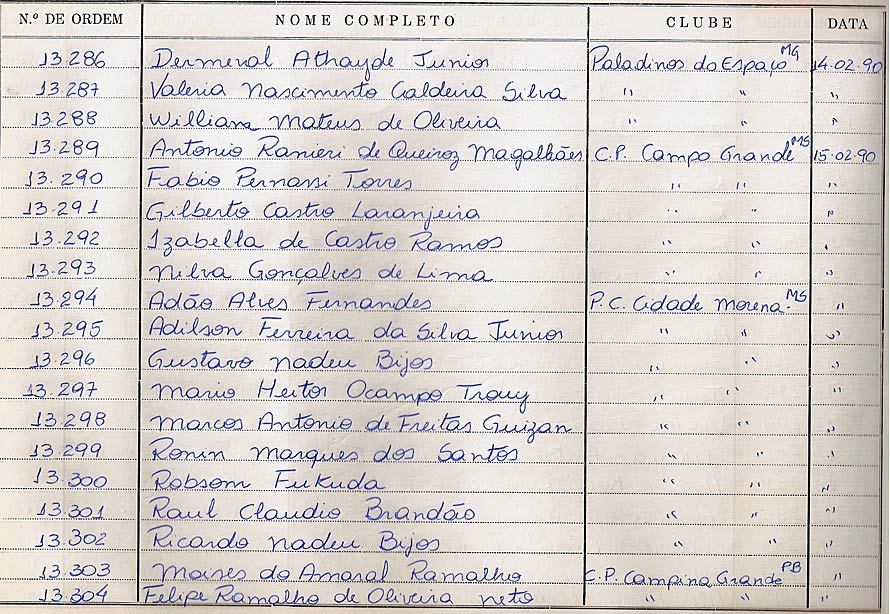 N.º DE ORDEM NOME COMPLETO CLUBE DATA
13.286 Dermeval Athayde Junior Paladinos do Espaço MG 14.02.90
13.287 Valeria Nascimento Caldeira Silva " " "
13.288 Williana Mateus de Oliveira " " "
13.289 Antonio Ranieri de Queiroz Magalhães C.P. Campo Grande MS 15.02.90
13.290 Fabio Pernassi Torres " " "
13.291 Gilberto Castro Laranjeira " " "
13.292 Izabella de Castro Ramos " " "
13.293 Nilva Gonçalves de Lima " " "
13.294 Adão Alves Fernandes P.C. Cidade Morena. MS "
13.295 Adilson Ferreira da Silva Junior " " "
13.296 Gustavo Nadeu Bijos " "
13.297 Mario Heitor Ocampo Trouy " " "
13.298 Marcos Antonio de Freitas Guizan " " "
13.299 Ronin Marques dos Santos " " "
13.300 Robsom Fukuda " " "
13.301 Raul Claudio Brandão " " "
13.302 Ricardo Nadeu Bijos " " "
13.303 Moises do Amaral Ramalho C.P. Campina Grande PB "
13.304 Felipe Ramalho de Oliveira Neto " " "